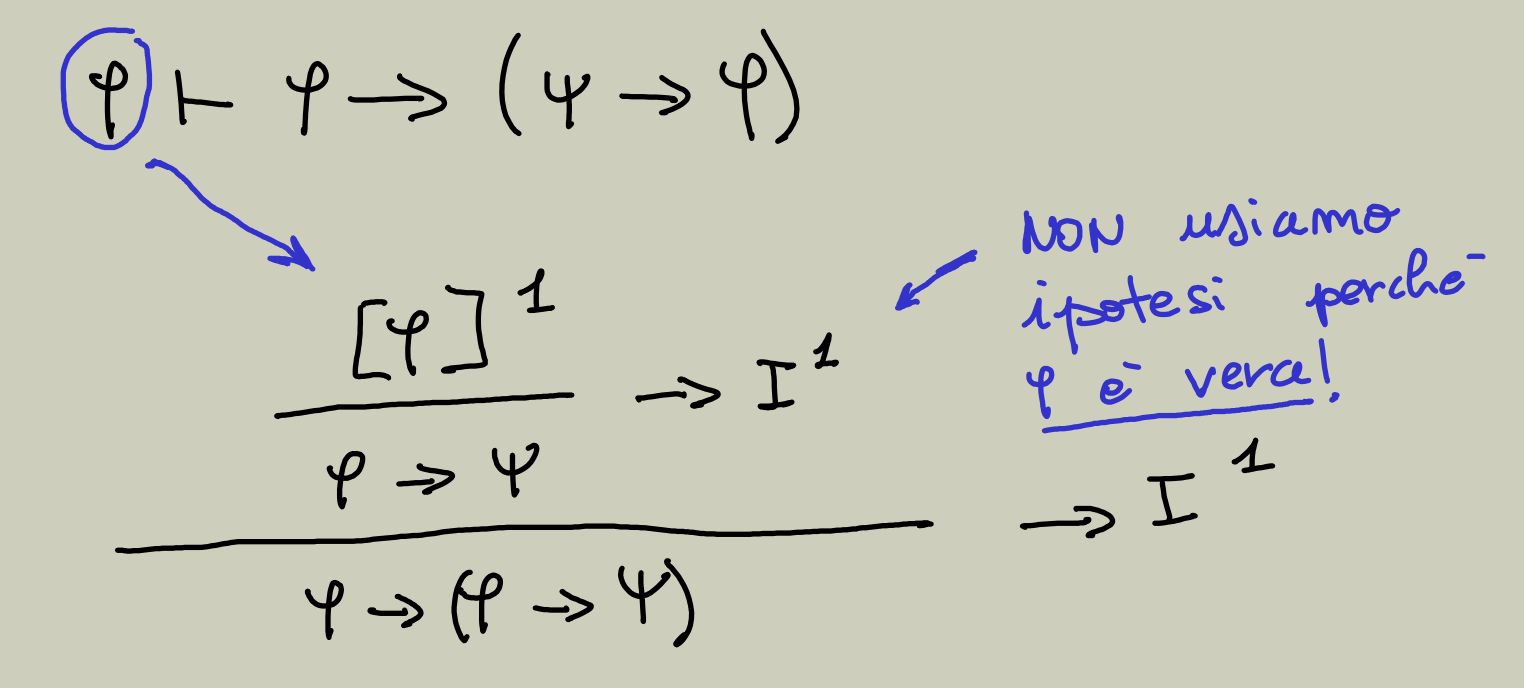 φ ⊢ φ → (ψ → φ)
[φ]¹
→ I¹
NON usiamo
ipotesi perchē
φ ē vera!
φ → ψ
→ I¹
φ → (φ → ψ)